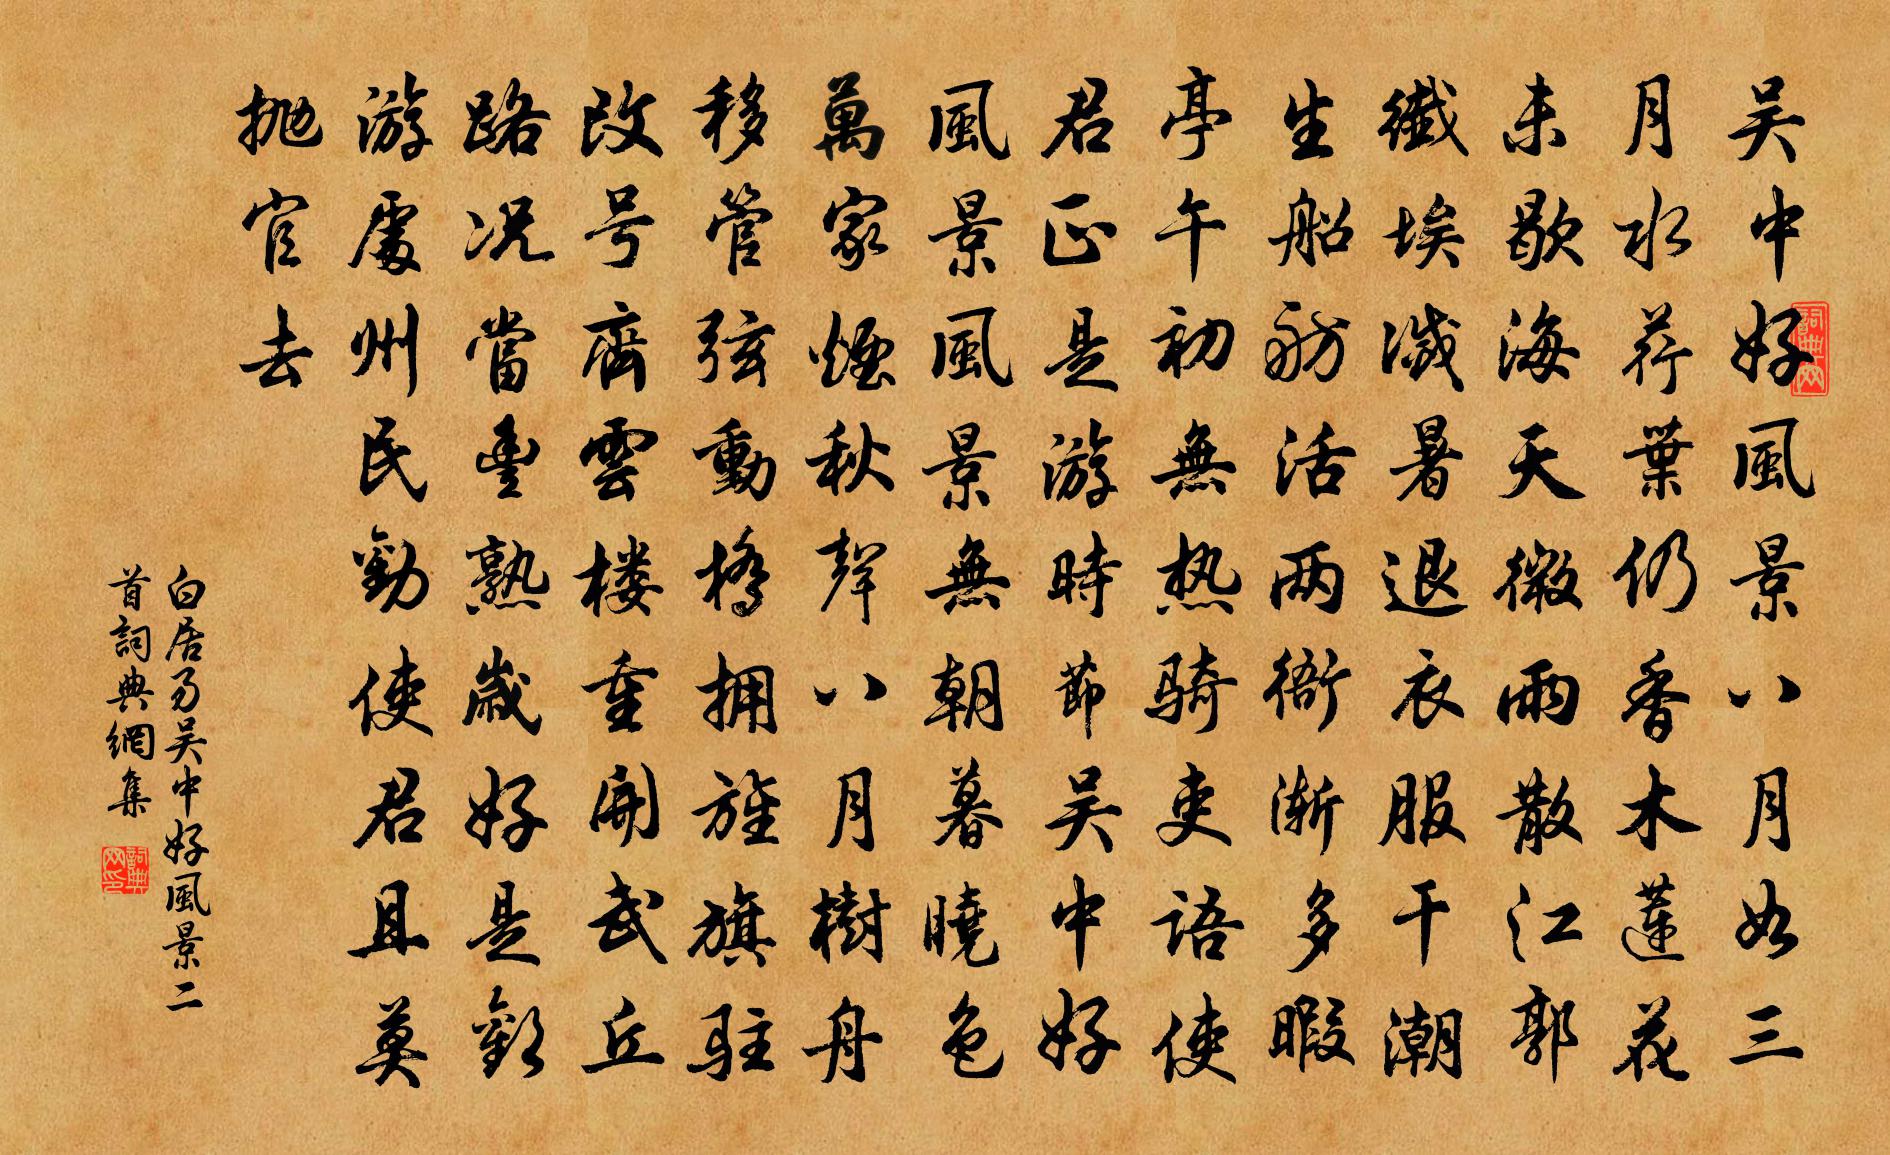 吴中好風景八月如三
月水荇葉仍香木蓮花
未歇海天微雨散江郭
纖埃滅暑退衣服干潮
生船舫活两衙漸多暇
亭午初無热骑吏語使
君正是游時節吴中好
風景風景無朝暮曉色
萬家煙秋聲八月樹舟
移管弦動橋拥旌旗駐
改号齊雲楼重開武丘
路况當豐熟歲好是歡
游處州民勸使君且莫
抛官去
白居易吴中好風景二
首詞典網集
詞典网
詞典网印